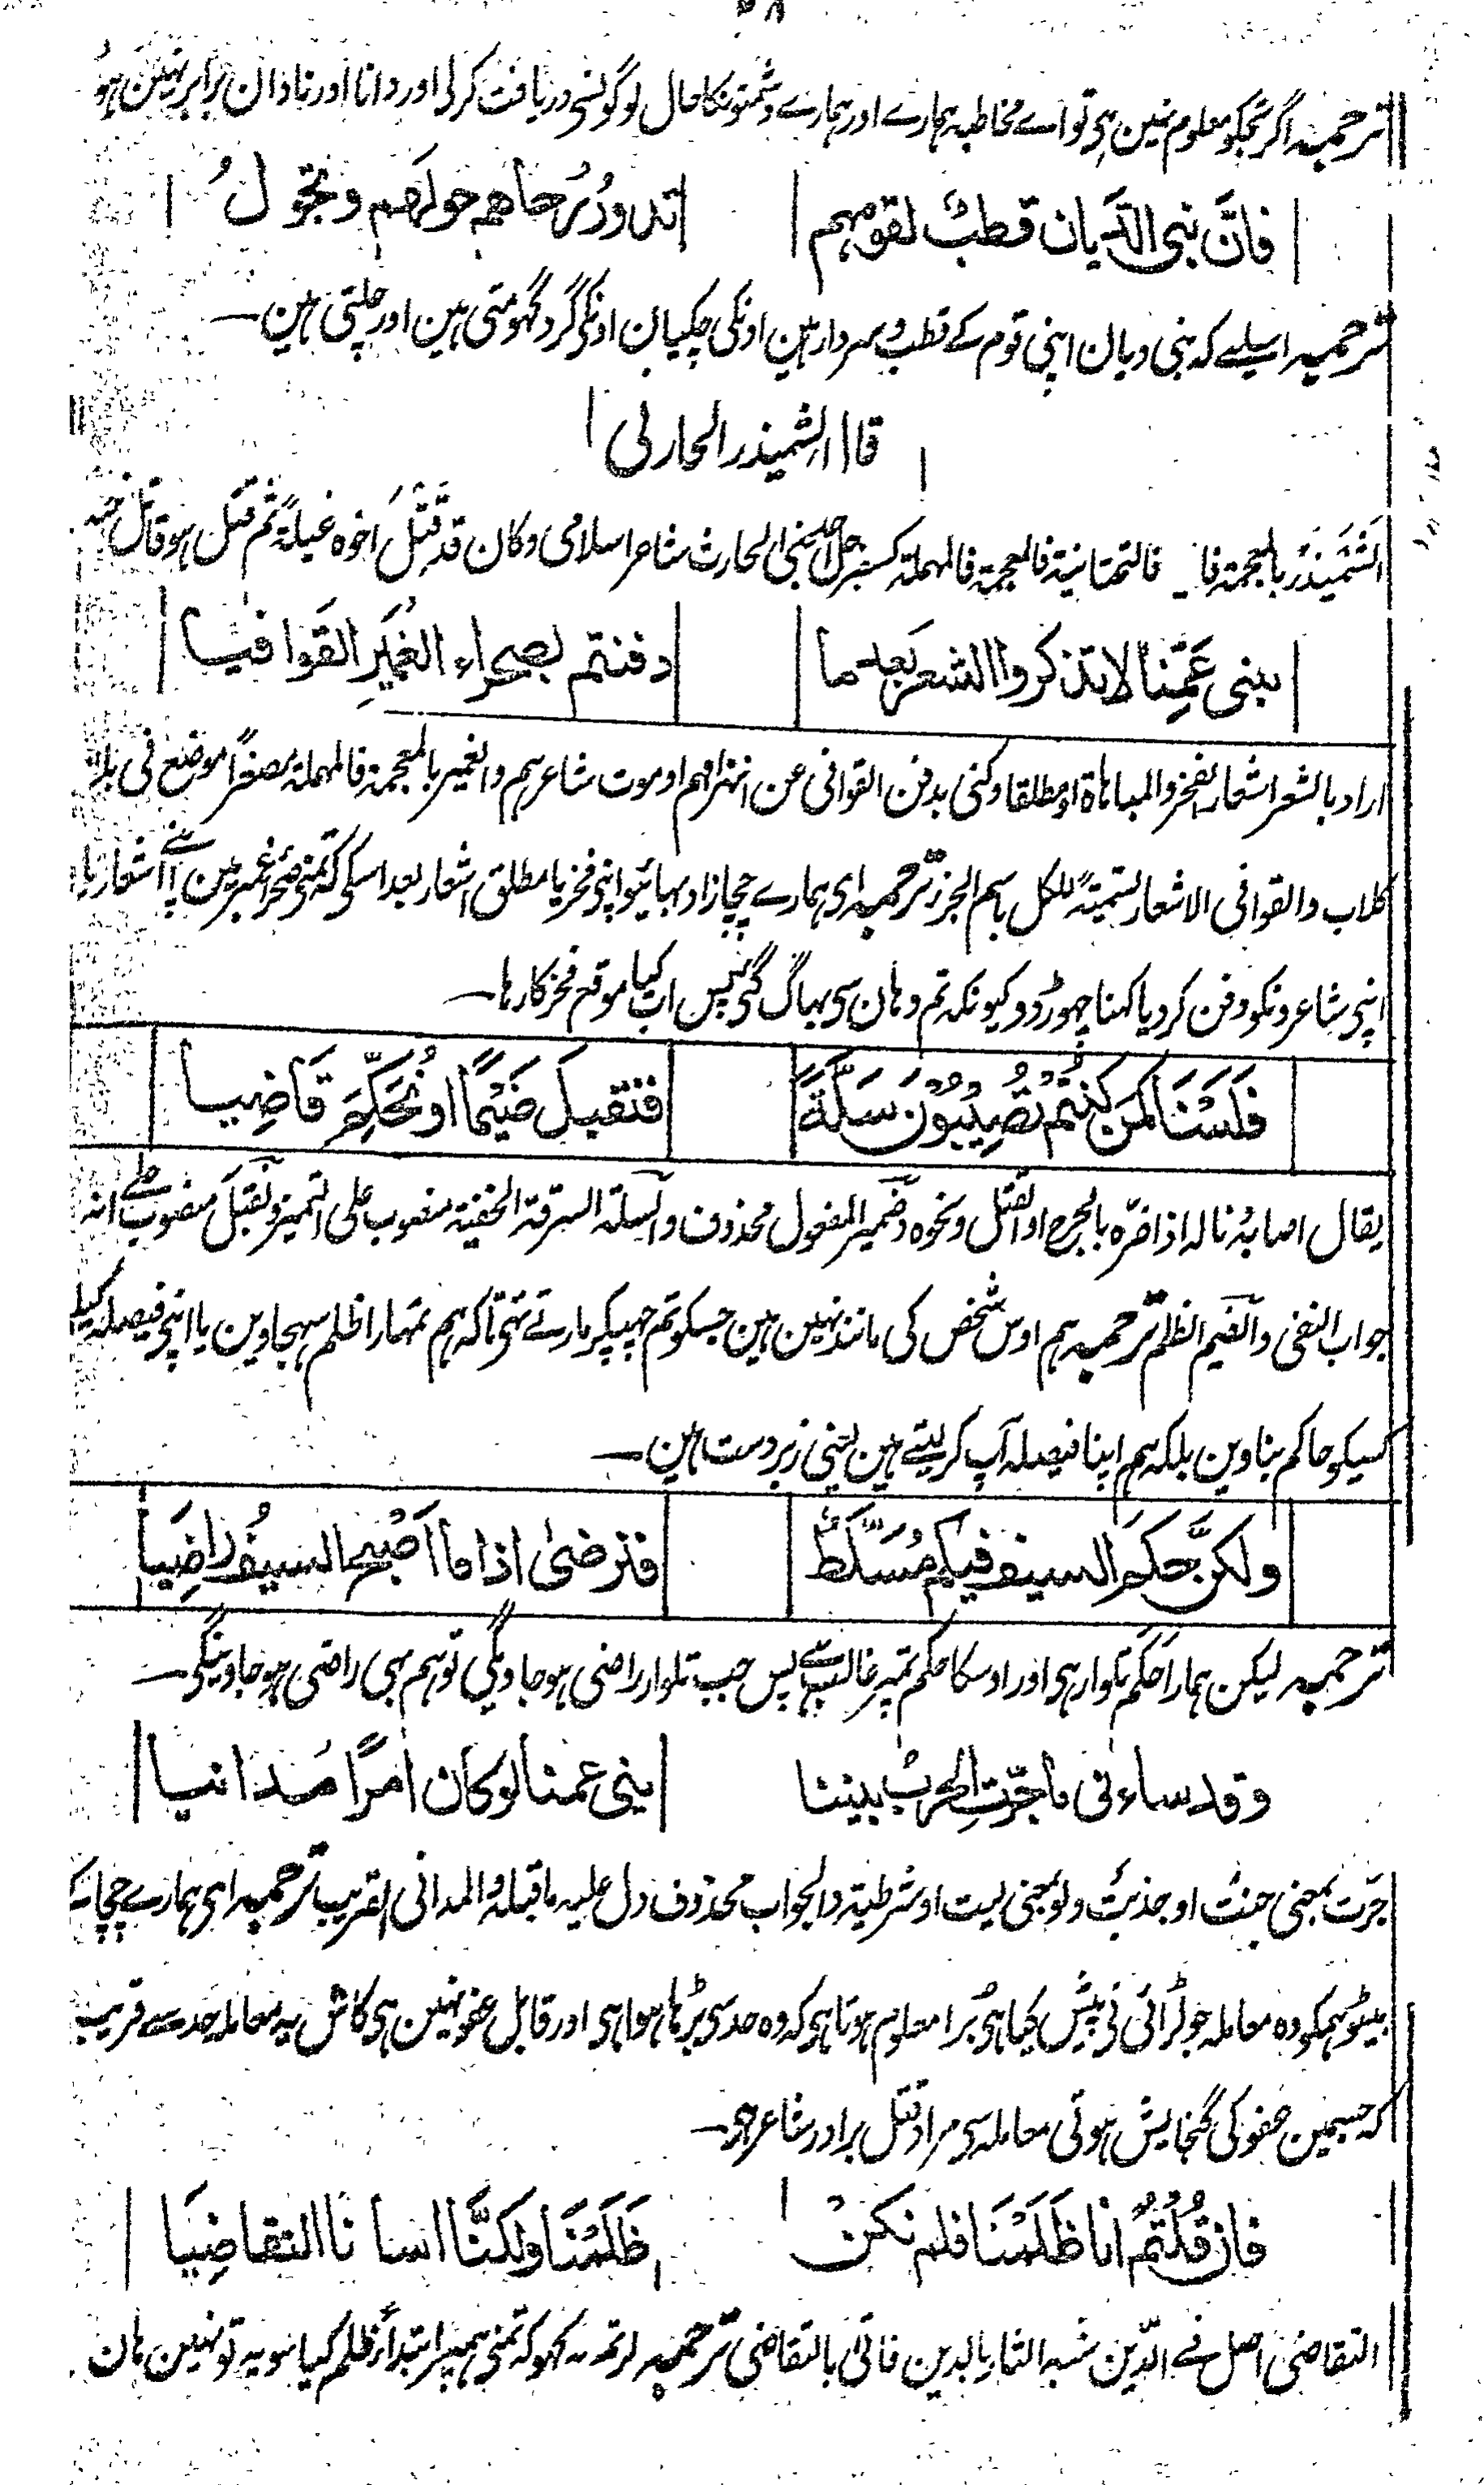 ۳۸
ترجمہ اگر تجکو معلوم نہین ہی تو اے مخاطبہ ہمارے اور ہمارے دشمنونکا حال لوگونسی دریافت کرلی اور دانا اور نادان برابر نہین ہو
فانَّ بنی الدَّیان قطبٌ لقومهم تدور رُحاهم حولهم و تجول ُ
ترجمہ اسیلیے کہ بنی دیان اپنی قوم کے قطب و سردار ہین اونکی چکیان اونکی گرد گھومتی ہین اور چلتی ہین۔
قال الشمیذر الحارثی
الشَّمَیذَر بالمعجمۃ فا فالتحتانیۃ فالمعجمۃ فالمہملۃ کسفرجل احد بنی الحارث شاعر اسلامی و کان قد قُتِلَ اخوہ غیلۃً ثم قتل ہو قاتل
بنی عَمِّنا لا تذکروا الشعر بعد ما دفنتم بصحراء الغُمَیرِ القَوافیا
اراد بالشعر اشعار الفخر والمباہاة او مطلقا و کنی بدفن القوافی عن انہزامہم او موت شاعرہم والغمیر بالمعجمۃ فالمہملۃ مصغراً موضع فی بلاد
کلاب والقوافی الاشعار تسمیۃً للکل باسم الجزء ترجمہ ای ہمارے چچازاد بہائیو اپنی فخر یا مطلق اشعار بعد اسکی کہ تمنی صحرا غمیر مین اپنے اشعار یا
اپنی شاعرونکو دفن کردیا کہنا چہوڑدو کیونکہ تم وہان سی بہاگ گئی پس اب کیا موقع فخر کا رہا۔
فَلَسْنَا کمن کنتُم تُصِیْبُوْنَ سَلَّةً فنقبلَ ضَیْمًا او نُحَکِّمَ قَاضِیا
یقال اصابہ نالہ اذا ضرّہ بالجرح او القتل و نحوہ و ضمیر المفعول محذوف والسّلۃ السرقۃ الخفیۃ منصوب علی التمیز و نقبل منصوب علے انہ
جواب النفی والضیم الظلم ترجمہ ہم اوس شخص کی مانند نہین ہین جسکو تم چہپکر مارتے تہی تاکہ ہم تمہارا ظلم سہجاوین یا اپنی فیصلہ کیلیے
کسیکو حاکم بناوین بلکہ ہم اپنا فیصلہ آپ کرلیتے ہین یعنی زبردست ہین۔
ولکنَّ حکمَ السیفِ فیکم مُسَلَّطٌ فنرضیٰ اذا ما اَصْبَحَ السیفُ راضِیَا
ترجمہ لیکن ہمارا حَکَم تلوار ہی اور اوسکا حکم تمپر غالب ہے پس جب تلوار راضی ہوجاویگی تو ہم بہی راضی ہوجاوینگی۔
وقد ساءنی ما جرّتِ الحربُ بیننا بنی عمنا لو کان امرًا مُدانیا
جرّت بمعنی جنت او جذبت و لو بمعنی لیت او شرطیۃ والجواب محذوف دل علیہ ما قبلہ والمدانی القریب ترجمہ ای ہمارے چچا کے
بیٹو ہمکو وہ معاملہ جو لڑائی نی پیش کیا ہی بُرا معلوم ہوتا ہی کہ وہ حد سی بڑہا ہوا ہی اور قابل عفو نہین ہی کاش یہ معاملہ حد سے قریب
کہ جسمین عفو کی گنجایش ہوتی معاملہ سی مراد قتل برادر شاعر ہی۔
فان قُلْتُمُ انا ظَلَمْنَا فلم نکنْ ظَلَمْنَا ولکنَّا اسأنا التقاضِیَا
التقاضی اصل فے الدّین شبہ الثار بالدین فاتی بالتقاضی ترجمہ اگر تم یہ کہو کہ تمنی ہمپر ابتداءً ظلم کیا سو یہ تو نہین ہان